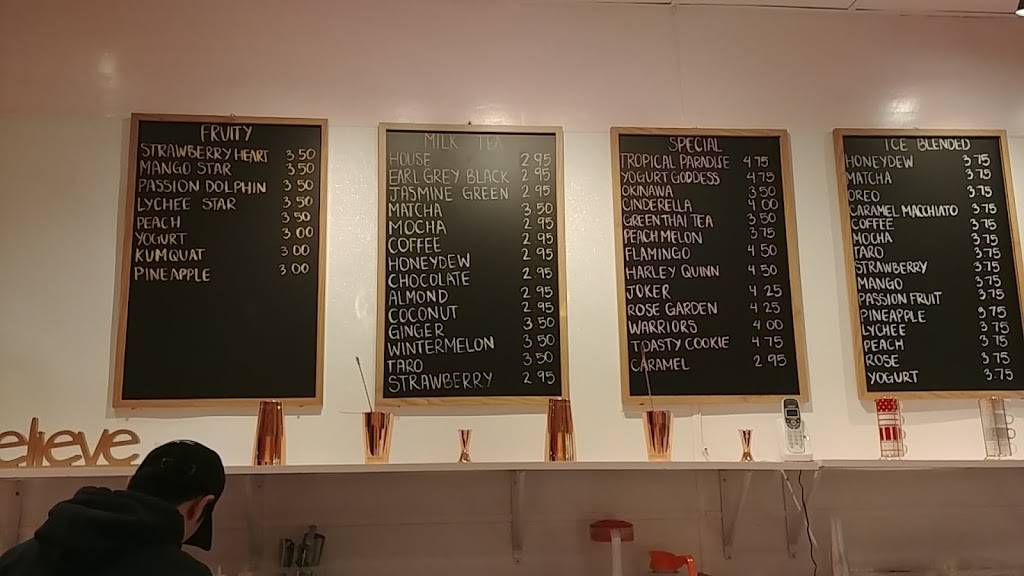 FRUITY
STRAWBERRY HEART 3.50
MANGO STAR 3.50
PASSION DOLPHIN 3.50
LYCHEE STAR 3.50
PEACH 3.50
YOGURT 3.00
KUMQUAT 3.00
PINEAPPLE 3.00
MILK TEA
HOUSE 2.95
EARL GREY BLACK 2.95
JASMINE GREEN 2.95
MATCHA 3.50
MOCHA 2.95
COFFEE 2.95
HONEYDEW 2.95
CHOCOLATE 2.95
ALMOND 2.95
COCONUT 2.95
GINGER 3.50
WINTERMELON 3.50
TARO 3.50
STRAWBERRY 2.95
SPECIAL
TROPICAL PARADISE 4.75
YOGURT GODDESS 4.75
OKINAWA 3.50
CINDERELLA 4.00
GREEN THAI TEA 3.50
PEACH MELON 3.75
FLAMINGO 4.50
HARLEY QUINN 4.50
JOKER 4.25
ROSE GARDEN 4.25
WARRIORS 4.00
TOASTY COOKIE 4.75
CARAMEL 2.95
ICE BLENDED
HONEYDEW 3.75
MATCHA 3.75
OREO 3.75
CARAMEL MACCHIATO 3.75
COFFEE 3.75
MOCHA 3.75
TARO 3.75
STRAWBERRY 3.75
MANGO 3.75
PASSION FRUIT 3.75
PINEAPPLE 3.75
LYCHEE 3.75
PEACH 3.75
ROSE 3.75
YOGURT 3.75
elieve